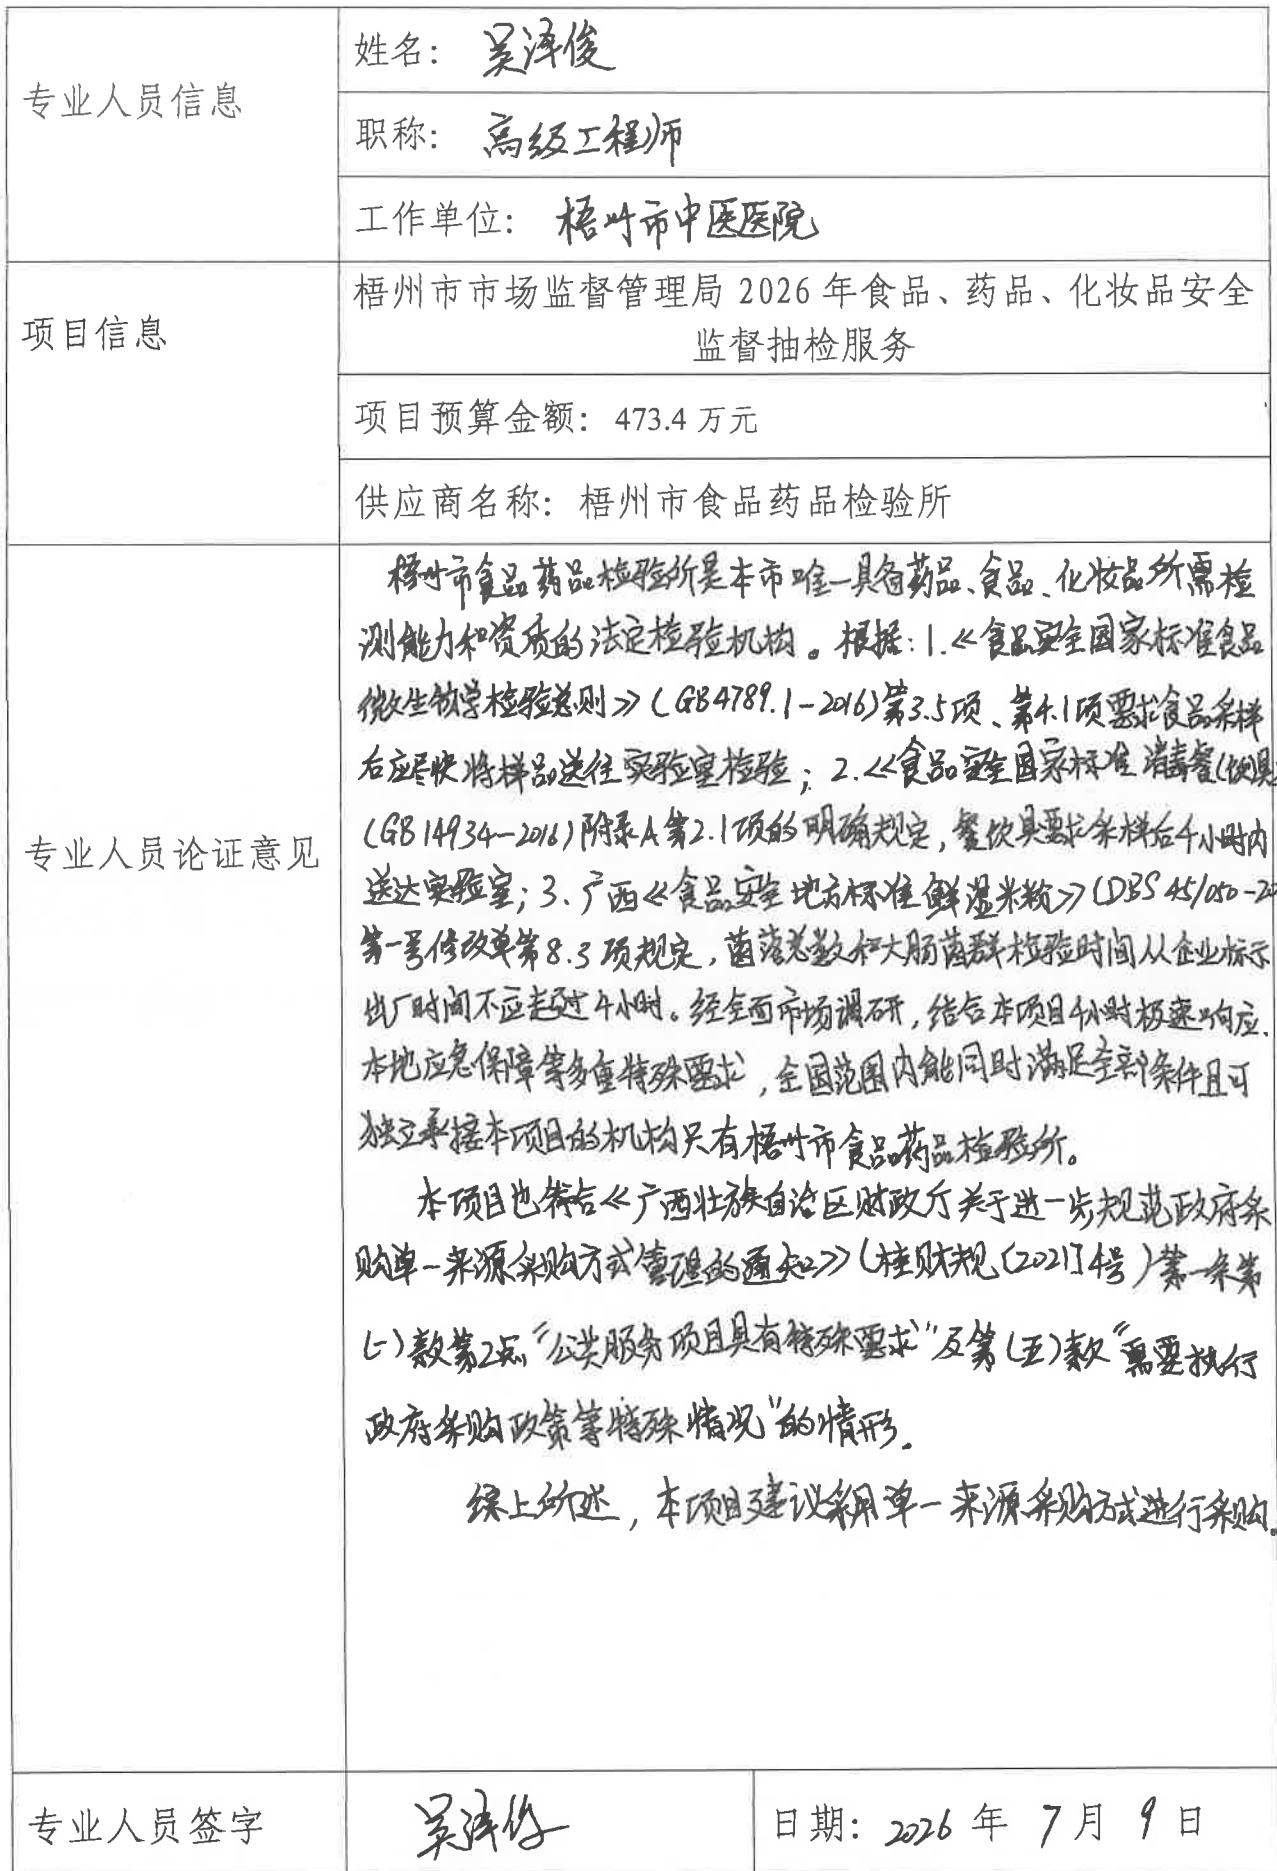 专业人员信息
姓名： 吴泽俊
职称： 高级工程师
工作单位： 梧州市中医医院
项目信息
梧州市市场监督管理局 2026 年食品、药品、化妆品安全
监督抽检服务
项目预算金额： 473.4 万元
供应商名称： 梧州市食品药品检验所
专业人员论证意见
梧州市食品药品检验所是本市唯一具备药品、食品、化妆品所需检
测能力和资质的法定检验机构。根据：1.《食品安全国家标准食品
微生物学检验总则》（GB4789.1-2016）第3.5项、第4.1项要求食品采样
后应尽快将样品送往实验室检验；2.《食品安全国家标准 消毒餐(饮)具》
(GB 14934-2016)附录A第2.1项的明确规定，餐饮具要求采样后4小时内
送达实验室；3、广西《食品安全地方标准 鲜湿米粉》（DBS 45/050-20
第一号修改单第8.3项规定，菌落总数和大肠菌群检验时间从企业标示
出厂时间不应超过4小时。经全面市场调研，结合本项目4小时极速响应、
本地应急保障等多重特殊要求，全国范围内能同时满足全部条件且可
独立承接本项目的机构只有梧州市食品药品检验所。
本项目也符合《广西壮族自治区财政厅关于进一步规范政府采
购单一来源采购方式管理的通知》（桂财规〔2021〕4号）第一条第
(一)款第2点“公共服务项目具有特殊要求”及第(五)款“需要执行
政府采购政策等特殊情况”的情形。
综上所述，本项目建议采用单一来源采购方式进行采购。
专业人员签字
吴泽俊
日期： 2026 年 7 月 9 日